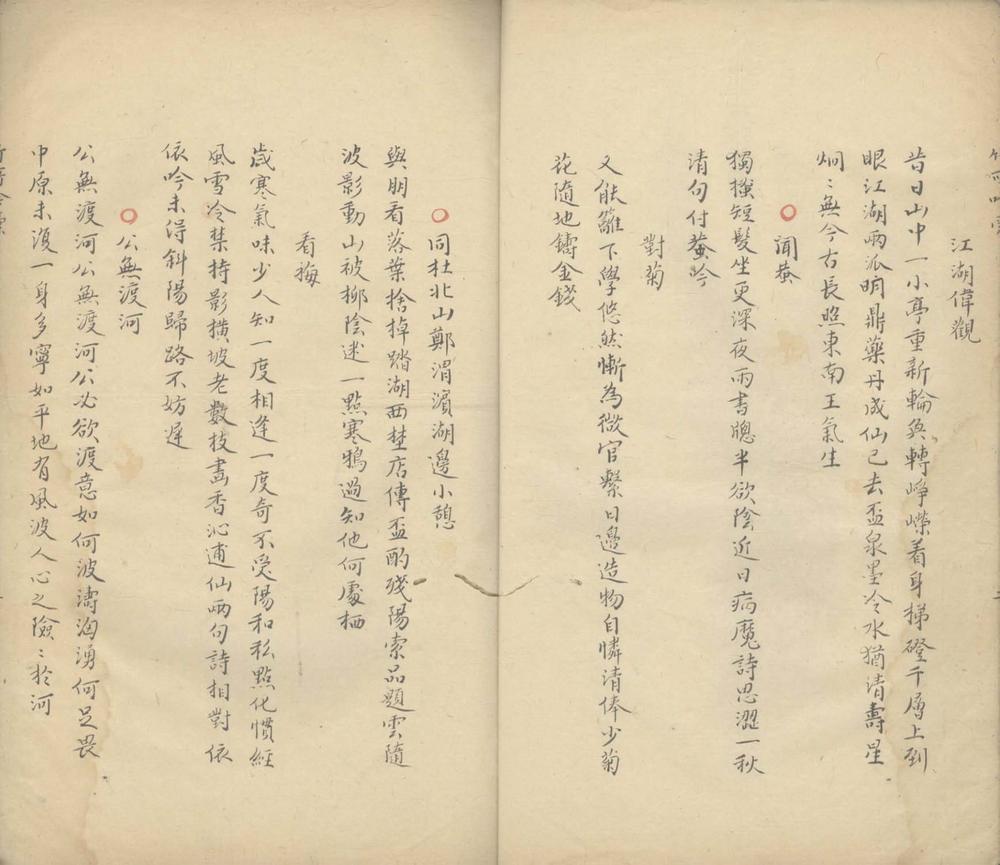 江湖偉觀
昔日山中一小亭重新輪奐轉崢嶸着身梯磴千層上到
眼江湖兩派明鼎藥丹成仙已去盃泉墨冷水猶清壽星
炯〻無今古長照東南王氣生
聞蛩
獨搔短髮坐更深夜雨書窗半欲陰近日病魔詩思澀一秋
清句付蛩吟
對菊
又能籬下學悠然慚為微官繫日邊造物自憐清俸少菊
花隨地鑄金錢
同杜北山鄭渭濱湖邊小憩
與朋看落葉捨棹踏湖西埜店傳盃酌殘陽索品題雲隨
波影動山被柳陰迷一點寒鴉過知他何處栖
看梅
歲寒氣味少人知一度相逢一度奇不受陽和私點化慣經
風雪冷禁持影橫坡老數枝畵香沁逋仙兩句詩相對依
依吟未得斜陽歸路不妨遲
公無渡河
公無渡河公無渡河公必欲渡意如何波濤洶湧何足畏
中原未復一身多寧如平地有風波人心之險〻於河